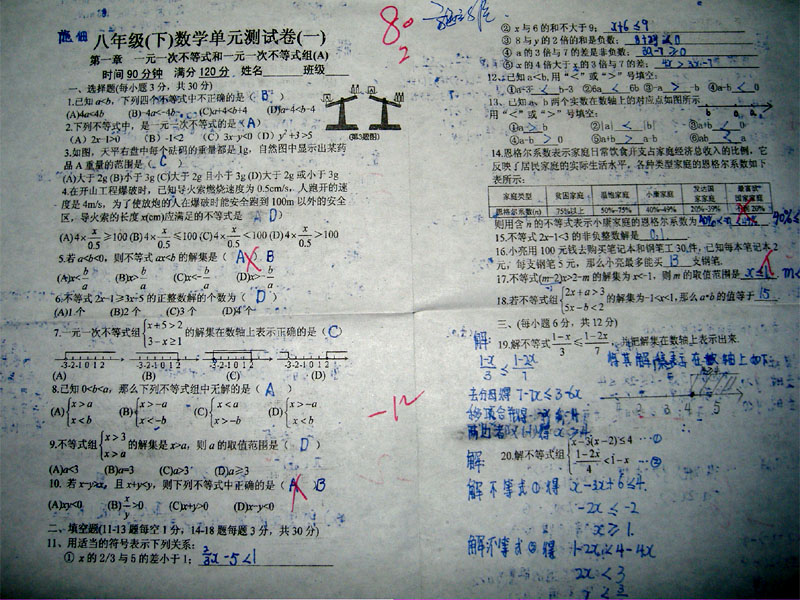 80
2
八年级(下)数学单元测试卷(一)
第一章 一元一次不等式和一元一次不等式组(A)
时间 90 分钟 满分 120 分 姓名 班级
一、选择题(每小题 3 分，共 30 分)
1.已知 a<b，下列四个不等式中不正确的是( B )
(A)4a<4b (B)-4a<-4b (C)a+4<b+4 (D)a-4<b-4
2.下列不等式中，是一元一次不等式的是( A )
(A) 2x-1>0 (B) -1<2 (C) 3x-y<0 (D) y²+3>5
3.如图，天平右盘中每个砝码的重量都是 1g，自然图中显示出某药
品 A 重量的范围是( C )
(A)大于 2g (B)小于 3g (C)大于 2g 且小于 3g (D)大于 2g 或小于 3g
(第3题图)
4.在开山工程爆破时，已知导火索燃烧速度为 0.5cm/s，人跑开的速
度是 4m/s，为了使放炮的人在爆破时能安全跑到 100m 以外的安全
区，导火索的长度 x(cm)应满足的不等式是 D )
(A)4×x/0.5≥100 (B)4×x/0.5≤100 (C)4×x/0.5<100 (D)4×x/0.5>100
5.若 a<b<0，则不等式 ax<b 的解集是( A ) B
(A)x<b/a (B)x>b/a (C)x<-b/a (D)x>-b/a
6.不等式 2x-1≥3x-5 的正整数解的个数为( D )
(A)1 个 (B)2 个 (C)3 个 (D)4 个
7.一元一次不等式组{x+5>2 3-x≥1 的解集在数轴上表示正确的是( C )
-3-2-1 0 1 2 -3-2-1 0 1 2 -3-2-1 0 1 2 -3-2-1 0 1 2
(A) (B) (C) (D)
8.已知 0<b<a，那么下列不等式组中无解的是( A )
(A){x>a x<b (B){x>-a x<-b (C){x<a x>-b (D){x>-a x<b
9.不等式组{x>3 x>a 的解集是 x>a，则 a 的取值范围是( D )
(A)a<3 (B)a=3 (C)a>3 (D)a≥3
10. 若 x-y>x，且 x+y<y，则下列不等式中正确的是( A )B
(A)xy<0 (B)x/y>0 (C)x+y>0 (D)x-y<0
-12
二、填空题(11-13 题每空 1 分，14-18 题每题 3 分，共 30 分)
11、用适当的符号表示下列关系：
① x 的 2/3 与 5 的差小于 1； 2/3x-5<1
② x 与 6 的和不大于 9； x+6≤9
③ 8 与 y 的 2 倍的和是负数；
④ a 的 3 倍与 7 的差是非负数； 3a-7≥0
⑤ x 的 4 倍大于 x 的 3 倍与 7 的差； 4x>3x-7
12.已知 a<b，用“<”或“>”号填空：
①a-3 < b-3 ②6a < 6b ③-a > -b ④a-b < 0
13、已知 a、b 两个实数在数轴上的对应点如图所示
用“<”或“>”号填空：
14.恩格尔系数表示家庭日常饮食开支占家庭经济总收入的比例，它
反映了居民家庭的实际生活水平，各种类型家庭的恩格尔系数如下
表所示：
家庭类型 贫困家庭 温饱家庭 小康家庭 发达国家家庭 最富裕国家家庭
恩格尔系数(n) 75%以上 50%~75% 40%~49% 20%~39%
则用含 n 的不等式表示小康家庭的恩格尔系数为
15.不等式 2x-1<3 的非负整数解是 0,1
16.小亮用 100 元钱去购买笔记本和钢笔工 30 件，已知每本笔记本 2
元，每支钢笔 5 元，那么小亮最多能买 13 支钢笔.
17.不等式(m-2)x>2-m 的解集为 x<-1，则 m 的取值范围是
18.若不等式组{2x+a>3 5x-b<2 的解集为 -1<x<1,那么 a·b 的值等于 15
三、(每小题 6 分，共 12 分)
19.解不等式 (1-x)/3≤(1-2x)/7，并把解集在数轴上表示出来.
解 (1-x)/3≤(1-2x)/7
将其解集表示在数轴上如下
去分母得 7-7x≤3-6x
两边都 得 x≥4
2 3 4 5
20.解不等式组{x-3(x-2)≤4 …① (1-2x)/4<1-x …②
解
解不等式①得 x-3x+6≤4
-2x≤-2
x≥1.
解不等式②得 1-2x<4-4x
2x<3